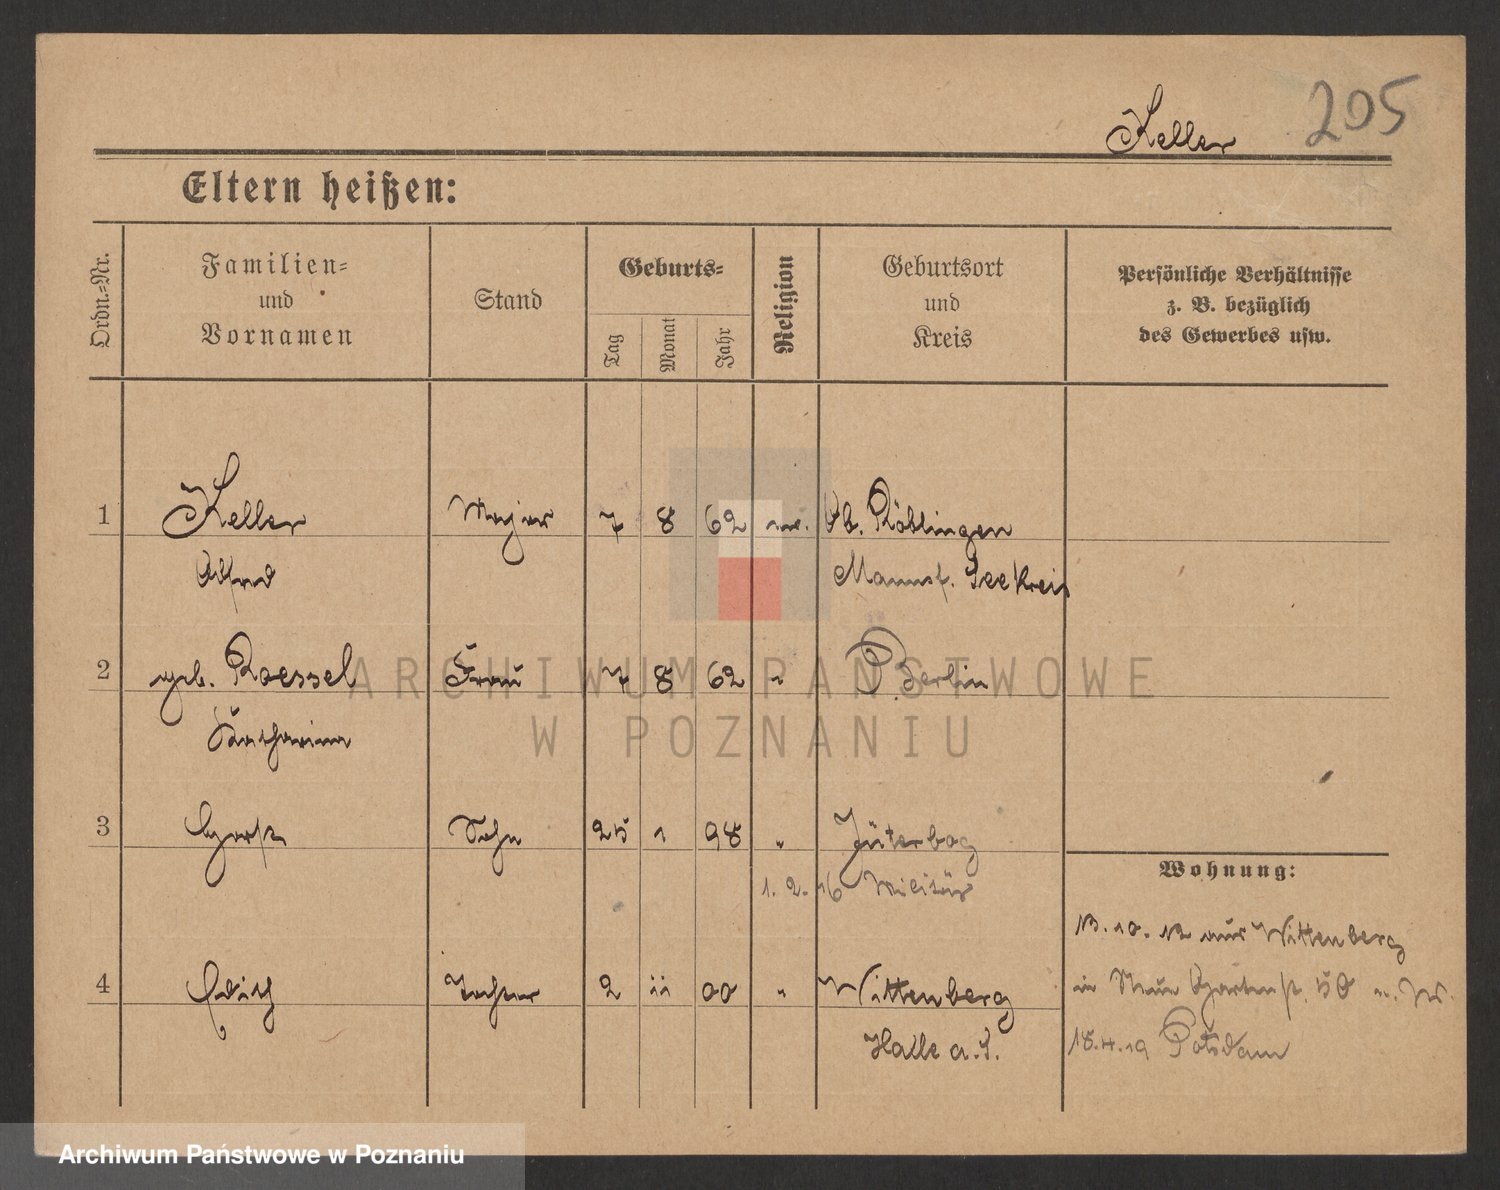 205
Keller
Eltern heißen:
Ordn.=Nr.
Familien=
und
Vornamen
Stand
Geburts=
Tag
Monat
Jahr
Religion
Geburtsort
und
Kreis
Persönliche Verhältnisse
z. B. bezüglich
des Gewerbes usw.
1 Keller Major 7 8 62 ev. Ob. Röblingen
Alfred Mannsf. Seekreis
2 geb. Roessel Frau 7 8 62 " Berlin
Katharina
3 Horst Sohn 25 1 98 " Jüterbog
1. 2. 16 Militär
Wohnung:
13. 10. 12 aus Wittenberg
4 Edith Tochter 2 11 00 " Wittenberg
in Neue Gartenst. 50
Halle a. S.
18.4.19 Potsdam
ARCHIWUM PAŃSTWOWE
W POZNANIU
Archiwum Państwowe w Poznaniu